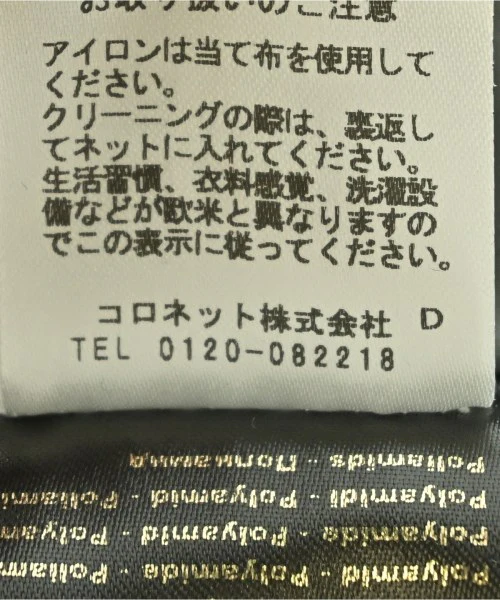 お取り扱いのご注意
アイロンは当て布を使用して
ください。
クリーニングの際は、裏返し
てネットに入れてください。
生活習慣、衣料感覚、洗濯設
備などが欧米と異なりますの
でこの表示に従ってください。
コロネット株式会社 D
TEL 0120-082218
Poliamids - Полиамид
Polyamid - Polyamidi - Poliami
Polyamide - Polyamid - Polyam
Polyamid - Polyamide - Poliam